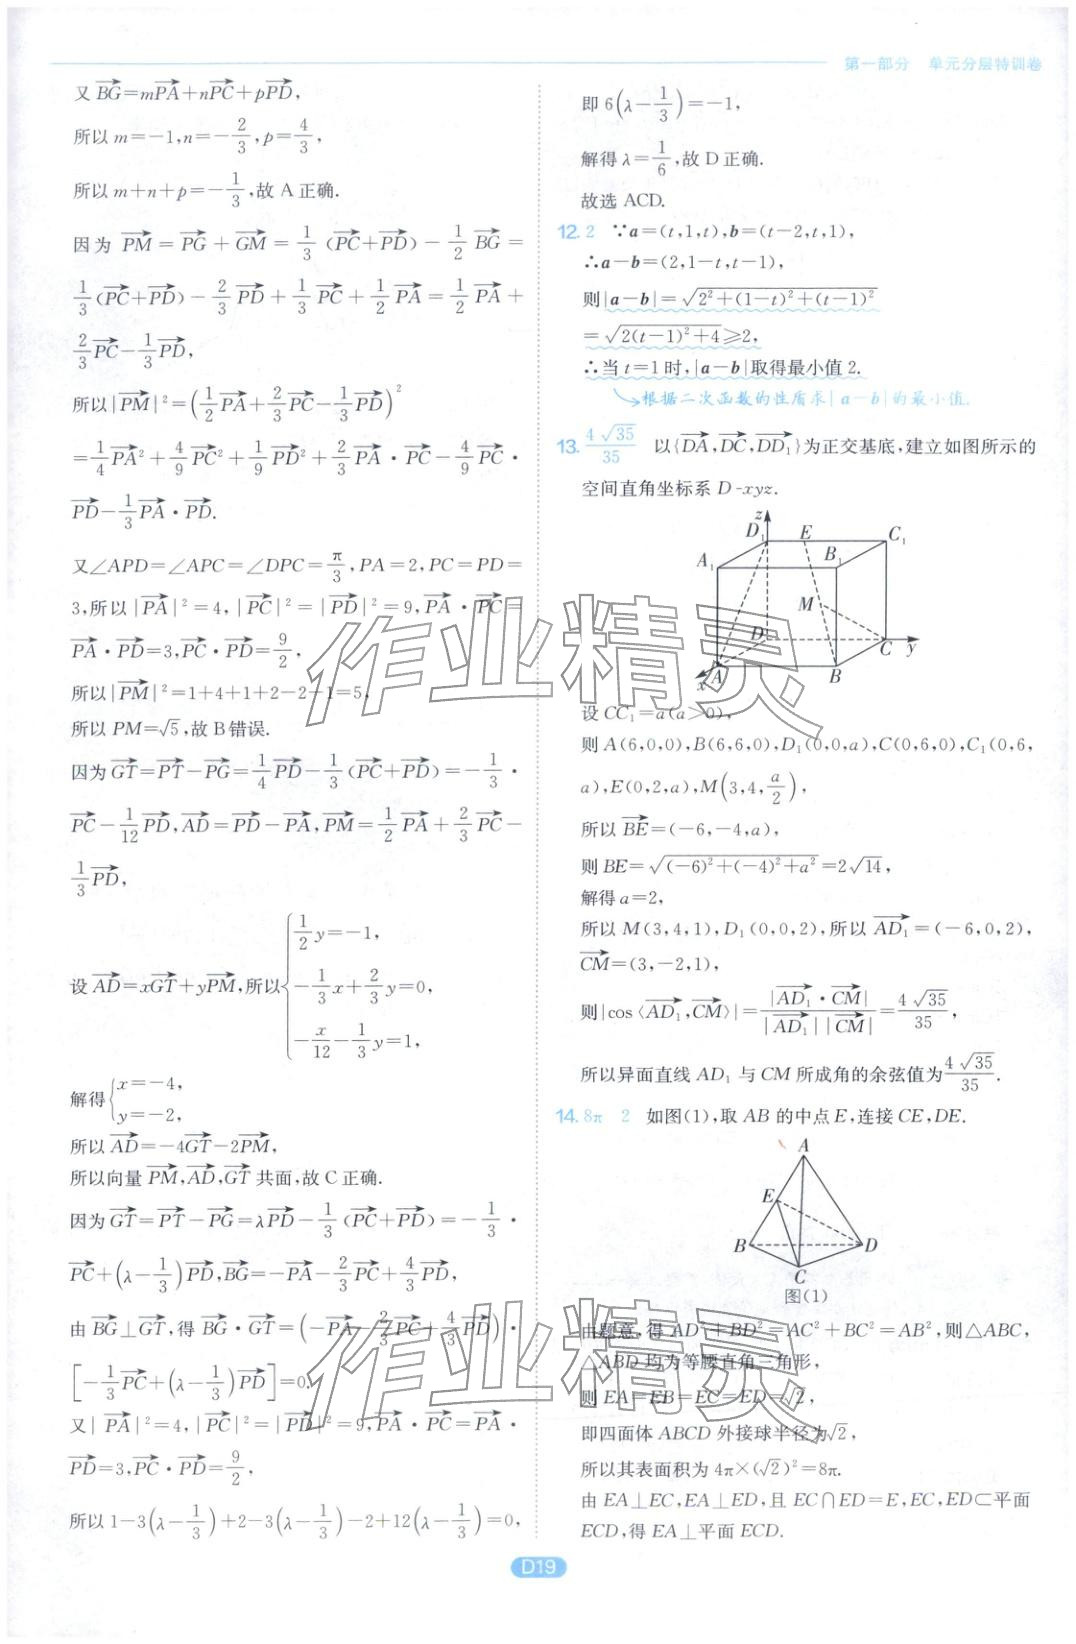 第一部分 单元分层特训卷
又$\overrightarrow{BG}=m\overrightarrow{PA}+n\overrightarrow{PC}+p\overrightarrow{PD}$,
所以 $m=-1,n=-\frac{2}{3},p=\frac{4}{3}$,
所以 $m+n+p=-\frac{1}{3}$,故 A 正确.
因为 $\overrightarrow{PM}=\overrightarrow{PG}+\overrightarrow{GM}=\frac{1}{3}(\overrightarrow{PC}+\overrightarrow{PD})-\frac{1}{2}\overrightarrow{BG}=$
$\frac{1}{3}(\overrightarrow{PC}+\overrightarrow{PD})-\frac{2}{3}\overrightarrow{PD}+\frac{1}{3}\overrightarrow{PC}+\frac{1}{2}\overrightarrow{PA}=\frac{1}{2}\overrightarrow{PA}+$
$\frac{2}{3}\overrightarrow{PC}-\frac{1}{3}\overrightarrow{PD}$,
所以$|\overrightarrow{PM}|^2=\left(\frac{1}{2}\overrightarrow{PA}+\frac{2}{3}\overrightarrow{PC}-\frac{1}{3}\overrightarrow{PD}\right)^2$
$=\frac{1}{4}\overrightarrow{PA}^2+\frac{4}{9}\overrightarrow{PC}^2+\frac{1}{9}\overrightarrow{PD}^2+\frac{2}{3}\overrightarrow{PA}\cdot\overrightarrow{PC}-\frac{4}{9}\overrightarrow{PC}\cdot$
$\overrightarrow{PD}-\frac{1}{3}\overrightarrow{PA}\cdot\overrightarrow{PD}$.
又∠APD=∠APC=∠DPC=$\frac{π}{3}$,PA=2,PC=PD=
3,所以$|\overrightarrow{PA}|^2=4,|\overrightarrow{PC}|^2=|\overrightarrow{PD}|^2=9,\overrightarrow{PA}\cdot\overrightarrow{PC}=$
$\overrightarrow{PA}\cdot\overrightarrow{PD}=3,\overrightarrow{PC}\cdot\overrightarrow{PD}=\frac{9}{2}$,
所以$|\overrightarrow{PM}|^2=1+4+1+2-2-1=5$,
所以 PM=$\sqrt{5}$,故 B 错误.
因为$\overrightarrow{GT}=\overrightarrow{PT}-\overrightarrow{PG}=\frac{1}{4}\overrightarrow{PD}-\frac{1}{3}(\overrightarrow{PC}+\overrightarrow{PD})=-\frac{1}{3}\cdot$
$\overrightarrow{PC}-\frac{1}{12}\overrightarrow{PD},\overrightarrow{AD}=\overrightarrow{PD}-\overrightarrow{PA},\overrightarrow{PM}=\frac{1}{2}\overrightarrow{PA}+\frac{2}{3}\overrightarrow{PC}-$
$\frac{1}{3}\overrightarrow{PD}$,
设$\overrightarrow{AD}=x\overrightarrow{GT}+y\overrightarrow{PM}$,所以$\begin{cases}\frac{1}{2}y=-1,\\-\frac{1}{3}x+\frac{2}{3}y=0,\\-\frac{x}{12}-\frac{1}{3}y=1,\end{cases}$
解得$\begin{cases}x=-4,\\y=-2,\end{cases}$
所以$\overrightarrow{AD}=-4\overrightarrow{GT}-2\overrightarrow{PM}$,
所以向量$\overrightarrow{PM},\overrightarrow{AD},\overrightarrow{GT}$共面,故 C 正确.
因为$\overrightarrow{GT}=\overrightarrow{PT}-\overrightarrow{PG}=λ\overrightarrow{PD}-\frac{1}{3}(\overrightarrow{PC}+\overrightarrow{PD})=-\frac{1}{3}\cdot$
$\overrightarrow{PC}+\left(λ-\frac{1}{3}\right)\overrightarrow{PD},\overrightarrow{BG}=-\overrightarrow{PA}-\frac{2}{3}\overrightarrow{PC}+\frac{4}{3}\overrightarrow{PD}$,
由$\overrightarrow{BG}⊥\overrightarrow{GT}$,得$\overrightarrow{BG}\cdot\overrightarrow{GT}=\left(-\overrightarrow{PA}-\frac{2}{3}\overrightarrow{PC}+\frac{4}{3}\overrightarrow{PD}\right)\cdot$
$\left[-\frac{1}{3}\overrightarrow{PC}+\left(λ-\frac{1}{3}\right)\overrightarrow{PD}\right]=0$.
又$|\overrightarrow{PA}|^2=4,|\overrightarrow{PC}|^2=|\overrightarrow{PD}|^2=9,\overrightarrow{PA}\cdot\overrightarrow{PC}=\overrightarrow{PA}\cdot$
$\overrightarrow{PD}=3,\overrightarrow{PC}\cdot\overrightarrow{PD}=\frac{9}{2}$,
所以 $1-3\left(λ-\frac{1}{3}\right)+2-3\left(λ-\frac{1}{3}\right)-2+12\left(λ-\frac{1}{3}\right)=0$,
即 $6\left(λ-\frac{1}{3}\right)=-1$,
解得 $λ=\frac{1}{6}$,故 D 正确.
故选 ACD.
12. 2 ∵a=(t,1,t),b=(t-2,t,1),
∴a-b=(2,1-t,t-1),
则$|a-b|=\sqrt{2^2+(1-t)^2+(t-1)^2}$
$=\sqrt{2(t-1)^2+4}≥2$,
∴当 t=1 时,|a-b|取得最小值 2.
根据二次函数的性质求|a-b|的最小值.
13. $\frac{4\sqrt{35}}{35}$ 以$\{\overrightarrow{DA},\overrightarrow{DC},\overrightarrow{DD_1}\}$为正交基底,建立如图所示的
空间直角坐标系 D-xyz.
z
D₁ E C₁
A₁ B₁
M
D
C y
x A B
设 CC₁=a(a>0),
则 A(6,0,0),B(6,6,0),D₁(0,0,a),C(0,6,0),C₁(0,6,
a),E(0,2,a),$M\left(3,4,\frac{a}{2}\right)$,
所以$\overrightarrow{BE}=(-6,-4,a)$,
则 $BE=\sqrt{(-6)^2+(-4)^2+a^2}=2\sqrt{14}$,
解得 a=2,
所以 M(3,4,1),D₁(0,0,2),所以$\overrightarrow{AD_1}=(-6,0,2)$,
$\overrightarrow{CM}=(3,-2,1)$,
则$|\cos\langle\overrightarrow{AD_1},\overrightarrow{CM}\rangle|=\frac{|\overrightarrow{AD_1}\cdot\overrightarrow{CM}|}{|\overrightarrow{AD_1}||\overrightarrow{CM}|}=\frac{4\sqrt{35}}{35}$,
所以异面直线 AD₁ 与 CM 所成角的余弦值为$\frac{4\sqrt{35}}{35}$.
14. 8π 2 如图(1),取 AB 的中点 E,连接 CE,DE.
A
E
B D
C
图(1)
由题意,得 AD²+BD²=AC²+BC²=AB²,则△ABC,
△ABD 均为等腰直角三角形,
则 EA=EB=EC=ED=$\sqrt{2}$,
即四面体 ABCD 外接球半径为$\sqrt{2}$,
所以其表面积为 $4π×(\sqrt{2})^2=8π$.
由 EA⊥EC,EA⊥ED,且 EC∩ED=E,EC,ED⊂平面
ECD,得 EA⊥平面 ECD.
D19
作业精灵
作业精灵